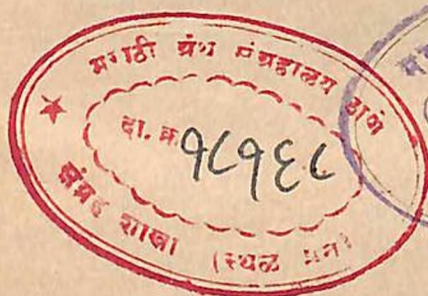 मराठी ग्रंथ संग्रहालय ठाणे
दा. क्र १८१६८
संग्रह शाखा (स्थळ प्रत)